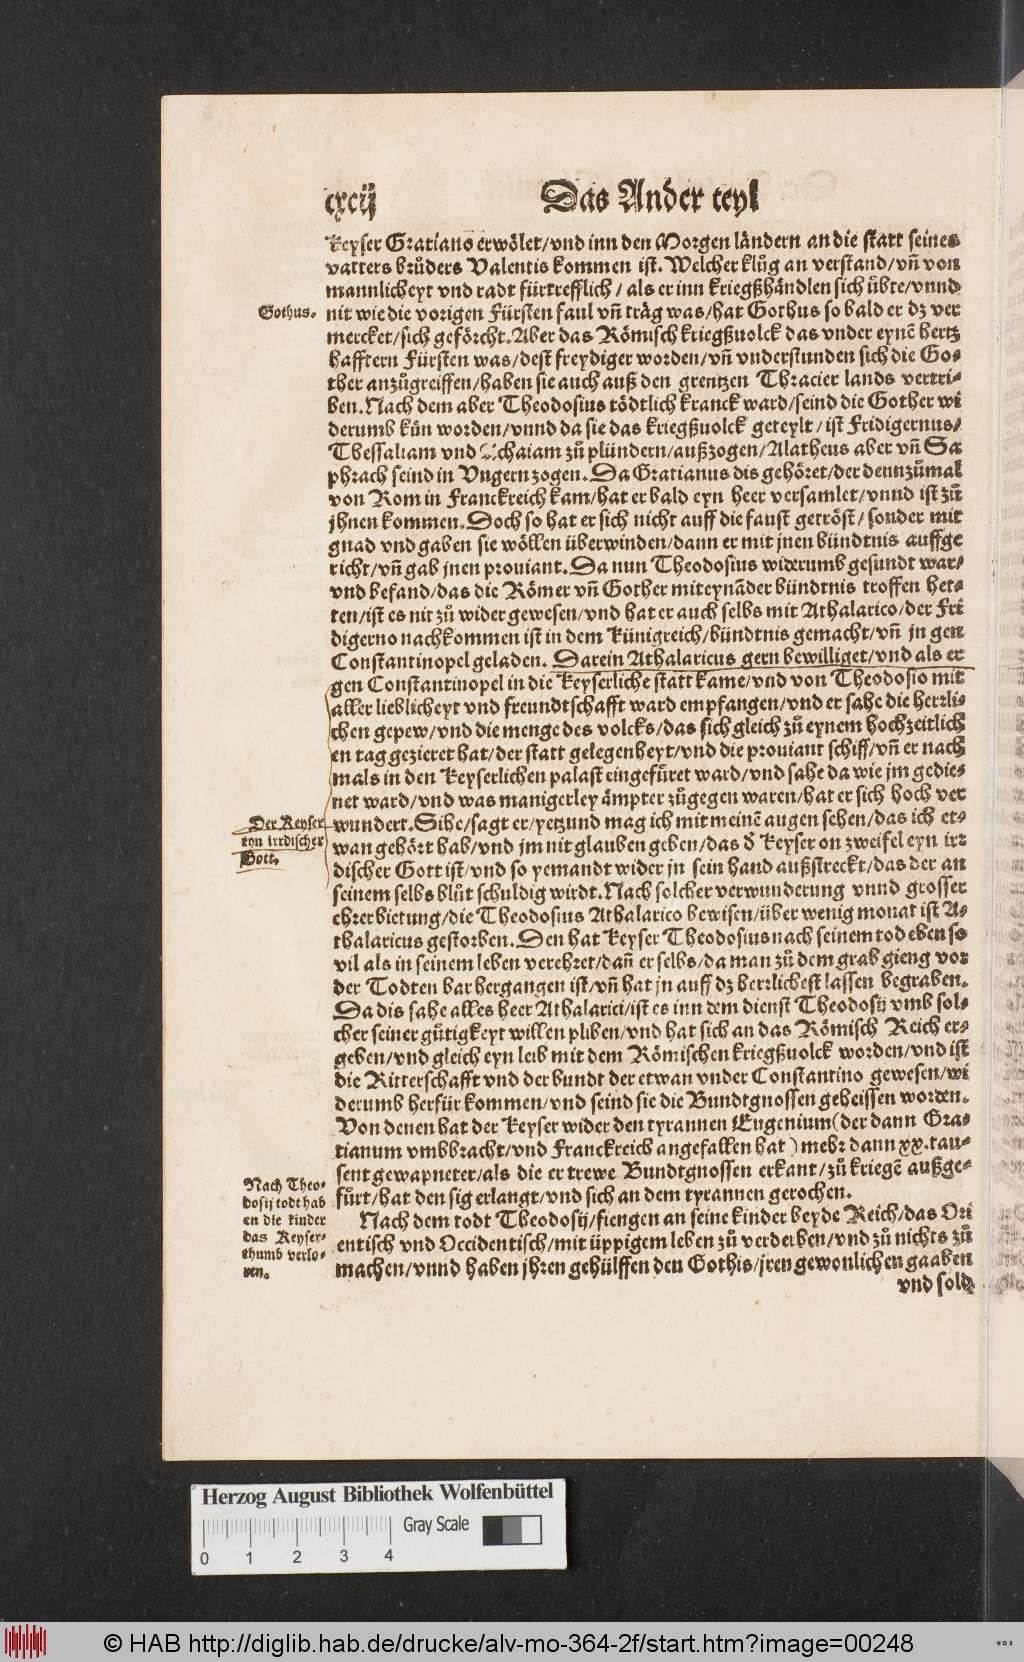 cxcij Das Ander teyl
Keyser Gratiano erwölet/vnd inn den Morgen ländern an die statt seines
vatters brůders Valentis kommen ist. Welcher klůg an verstand/vñ von
mannlicheyt vnd radt fürtrefflich/ als er inn kriegßhändlen sich übte/vnnd
Gothus.
nit wie die vorigen Fürsten faul vñ träg was/hat Gothus so bald er dz ver
mercket/sich geförcht. Aber das Römisch kriegßuolck das vnder eynē hertz
hafftern Fürsten was/dest freydiger worden/vñ vnderstunden sich die Go⸗
ther anzůgreiffen/haben sie auch auß den grentzen Thracier lands vertri⸗
ben. Nach dem aber Theodosius tödtlich kranck ward/seind die Gother wi
derumb kün worden/vnnd da sie das kriegßuolck geteylt/ist Fridigernus/
Thessaliam vnd Achaiam zů plündern/außzogen/Alatheus aber vñ Sa
phrach seind in Vngern zogen. Da Gratianus dis gehöret/der dennzůmal
von Rom in Franckreich kam/hat er bald eyn heer versamlet/vnnd ist zů
jhnen kommen. Doch so hat er sich nicht auff die faust getröst/ sonder mit
gnad vnd gaben sie wöllen überwinden/dann er mit jnen bündtnis auffge
richt/vñ gab jnen prouiant. Da nun Theodosius widerumb gesundt war/
vnd befand/das die Römer vñ Gother miteynāder bündtnis troffen het⸗
ten/ist es nit zů wider gewesen/vnd hat er auch selbs mit Athalarico/der Fri
digerno nachkommen ist in dem Künigreich/bündtnis gemacht/vñ jn gen
Constantinopel geladen. Darein Athalaricus gern bewilliget/vnd als er
gen Constantinopel in die Keyserliche statt kame/vnd von Theodosio mit
aller lieblicheyt vnd freundtschafft ward empfangen/vnd er sahe die herrli⸗
chen gepew/vnd die menge des volcks/das sich gleich zů eynem hochzeitlich
en tag gezieret hat/der statt gelegenheyt/vnd die prouiant schiff/vñ er nach
mals in den Keyserlichen palast eingefüret ward/vnd sahe da wie jm gedie⸗
net ward/vnd was manigerley ämpter zůgegen waren/hat er sich hoch ver
Der Keyser
eyn irrdischer
Gott.
wundert. Sihe/sagt er/yetzund mag ich mit meinē augen sehen/das ich et⸗
wan gehört hab/vnd jm nit glauben geben/das d̃ Keyser on zweifel eyn irr
discher Gott ist/vnd so yemandt wider jn sein hand außstreckt/das der an
seinem selbs blůt schuldig wirdt. Nach solcher verwunderung vnnd grosser
ehrerbietung/die Theodosius Athalarico bewisen/über wenig monat ist A⸗
thalaricus gestorben. Den hat Keyser Theodosius nach seinem tod eben so
vil als in seinem leben verehret/dañ er selbs/da man zů dem grab gieng vor
der Todten bar hergangen ist/vñ hat jn auff dz herrlichest lassen begraben.
Da dis sahe alles heer Athalarici/ist es inn dem dienst Theodosij vmb sol⸗
cher seiner gůtigkeyt willen pliben/vnd hat sich an das Römisch Reich er⸗
geben/vnd gleich eyn leib mit dem Römischen kriegßuolck worden/vnd ist
die Ritterschafft vnd der bundt der etwan vnder Constantino gewesen/wi
derumb herfür kommen/vnd seind sie die Bundtgnossen geheissen worden.
Von denen hat der Keyser wider den tyrannen Eugenium (der dann Gra⸗
tianum vmbbracht/vnd Franckreich angefallen hat) mehr dann xx. tau⸗
sent gewapneter/als die er trewe Bundtgnossen erkant/zů kriegē außge⸗
fürt/hat den sig erlangt/vnd sich an dem tyrannen gerochen.
Nach Theo⸗
dosij todt hab
en die kinder
das Keyser⸗
thumb verlo⸗
ren.
Nach dem todt Theodosij/fiengen an seine kinder beyde Reich/das Ori
entisch vnd Occidentisch/mit üppigem leben zů verderben/vnd zů nichts zů
machen/vnnd haben jhren gehülffen den Gothis/jren gewonlichen gaaben
vnd sold
Herzog August Bibliothek Wolfenbüttel
Gray Scale
0 1 2 3 4
© HAB http://diglib.hab.de/drucke/alv-mo-364-2f/start.htm?image=00248